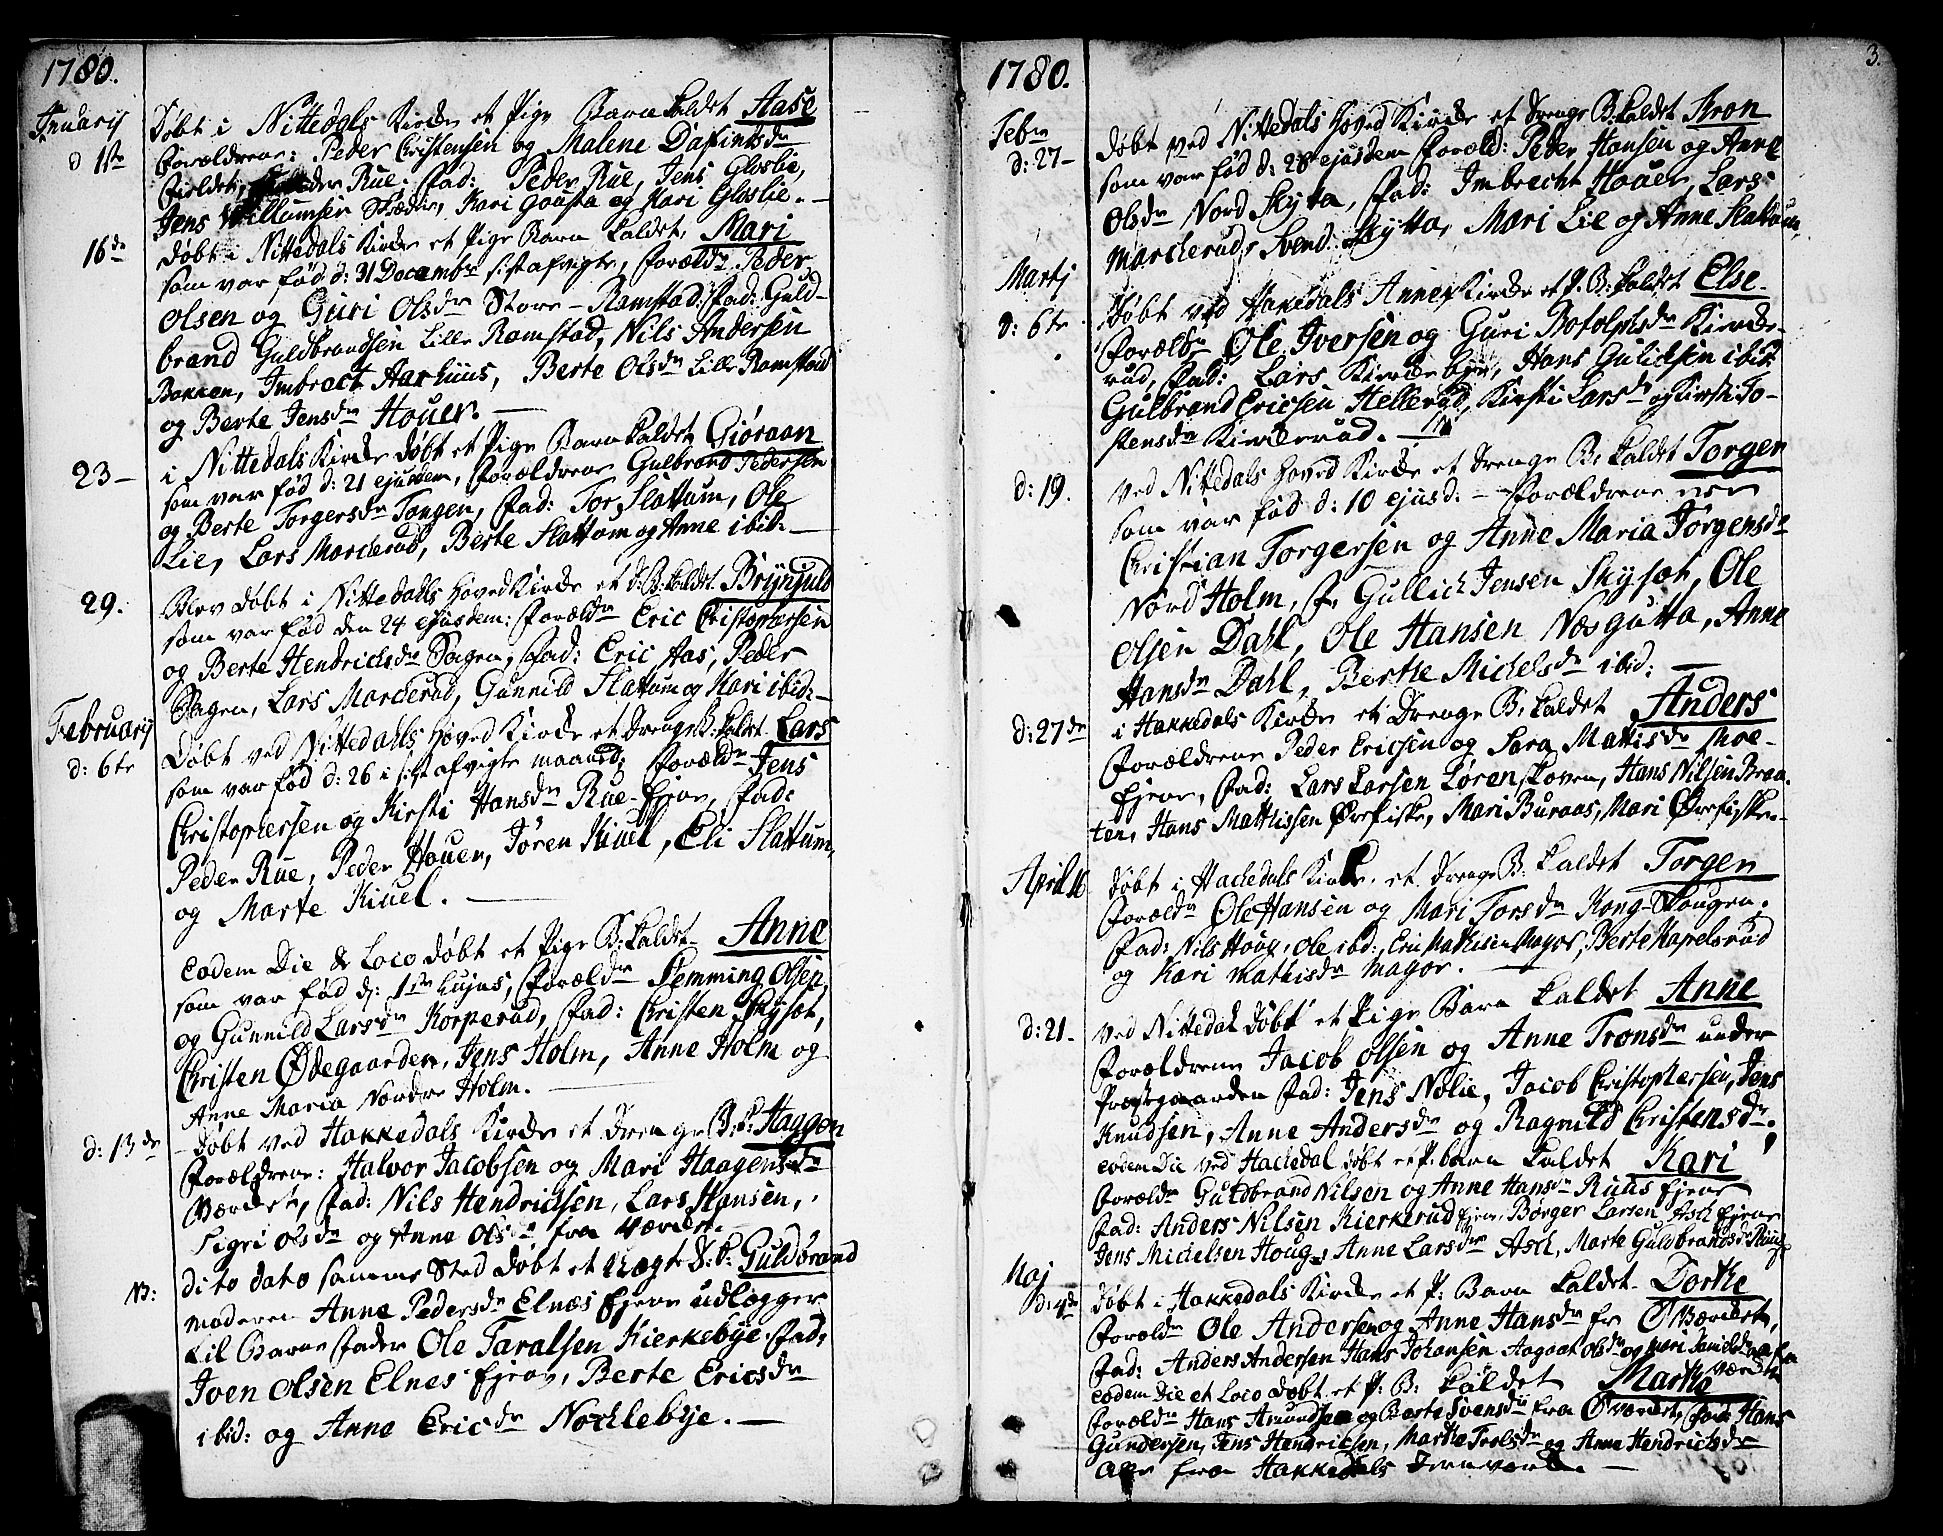 1780.
Januarij
d 1ste
Døbt i Nittedals Kirke et Pige Barn kaldet Aase
Forældrene: Peder Christensen og Malene Dafintsdr
Rue, Fad: Peder Rue, Jens Glosbie,
Jens Willumsen Skræder, Kari Gousta og Kari Glosbie. —
16de
Døbt i Nittedals Kirke et Pige Barn kaldet Mari
som var fød d: 31 Decembr sistafvigte, Forældr Peder
Olsen og Guri Olsdr Store-Ramstad. Fad: Guld-
brand Guldbrandsen Lille Ramstad, Nils Andersen
Bakken, Imbrect Aarhuus, Berte Olsdr Lille Ramstad
og Berte Jensdr Houer. —
23 —
i Nittedals Kirke døbt et Pige Barn kaldet Giøraan
som var fød d: 21 ejusdem, Forældrene Gulbrand Pedersen
og Berte Torgersdr Tangen, Fad: Tor Slattum, Ole
Lie, Lars Marcherud, Berte Slattum og Anne ibid: —
29.
Blev døbt i Nittedalls Hoved Kirke et d: B: kaldet Brynjuld
som var fød den 24 ejusdem: Forældr Eric Christophersen
og Berte Hendrichsdr Sagen, Fad: Eric Aas, Peder
Sagen, Lars Marcherud, Gunnild Slattum og Kari ibid: —
Februarij
d: 6te
Døbt ved Nittedalls Hoved Kirke et Drenge B: kaldet Lars
som var fød d: 26 i sistafvigte maaned, Forældr Jens
Christophersen og Kirsti Hansdr Rue-Ejere, Fad:
Peder Rue, Peder Houer, Jøren Kiuel, Eli Slattum,
og Marte Kiuel. —
Eodem Die & Loco døbt et Pige B: kaldet Anne
som var fød d: 1ste hujus, Forældr Flemming Olsen,
og Gunnild Larsdr Korperud, Fad: Christen Skyset,
Christen Ødegaarden, Jens Holm, Anne Holm og
Anne Maria Nordre Holm. —
d: 13de
Døbt ved Hakkedals Kirke et Drenge B: k: Haggen
Forældrene: Halvor Jacobsen og Mari Haagensdr
Værket, Fad: Nils Hendrichsen, Lars Hansen,
Sigri Olsdr og Anne Olsdr fra Værket.
NB:
Dito dato samme Sted døbt et uægte B: k: Guldbrand
moderen Anne Pedersdr Elnæs Ejere udlægger
til Barne fader Ole Taralsen Kierkebye. Fad:
Iven Olsen Elnes Ejere, Berte Ericsdr
ibid: og Anne Ericsdr Nochlebye. —
1780.
3.
Febr
d: 27 —
Døbt ved Nittedals Hoved Kirke et Drenge B: kaldet Aron
som var fød d: 20 ejusdem Foræld: Peder Hansen og Anne
Olsdr Nord Skyta, Fad: Imbrecht Houer, Lars
Marcherud, Svend Skytta, Mari Lie og Anne Slattum,
Martj
d: 6te
Døbt ved Hakedals Annex Kirke et P: B: kaldet Else
Forældr Ole Iversen og Guri Botolphsdr Kierke-
rud, Fad: Lars Kierkebye, Hans Gulichsen ibid:
Gulbrand Ericsen Hellerud, Kirsti Larsdr og Kirsti To-
stensdr Kierkerud. —
d: 19.
Ved Nittedals Hoved Kirke et Drenge B: kaldet Torger
som var fød d: 10 ejusd: — Forældrene ere
Christian Torgersen og Anne Maria Jørgensdr
Nord Holm, F: Gullich Jensen Skyset, Ole
Olsen Dahl, Ole Hansen Næsgutta, Anne
Hansdr Dahl, Berthe Michelsdr ibid: —
d: 27de
i Hakkedals Kirke et Drenge B: kaldet Anders
Forældrene Peder Ericsen og Sara Mattisdr Moe-
Ejere, Fad: Lars Larsen Løren skoven, Hans Nilsen Braa-
ten, Hans Mathissen Ørfiske, Mari Buraas, Mari Ørefisken —
April 16
Døbt i Hackedals Kirke et Drenge B: kaldet Torger
Forældr Ole Hansen og Mari Torsdr Kong-Skougen.
Fad: Nils Houg, Ole ibd:, Eric Mathisen Magor, Berte Kapelsrud
og Kari Mathisdr Magor. —
d: 21 —
Ved Nittedal Døbt et Pige Barn kaldet Anne
Forældrene Jacob Olsen og Anne Tronsdr under
Præstgaarden Fad: Jens Nølie, Jacob Christophersen, Jens
Knudsen, Anne Andersdr og Ragnild Christensdr.
eodem Die ved Hackedal døbt et P: barn kaldet Kari
Forældr Guldbrand Nilsen og Anne Hansdr Ruus Ejere
Fad: Anders Nilsen Kierkerud Ejere, Børger Larsen Asch Ejere
Jens Michelsen Houg, Anne Larsdr Asch, Marte Guldbrandsdr
Maj
d: 4de
Døbt i Hakkedals Kirke et P: Barn kaldet Dorthe
Forældr Ole Andersen og Anne Hansdr fr Øværket,
Fad: Anders Andersen Hans Johansen Aagaat Olsdr og Mari fra
Værket
eodem Die et Loco døbt et P: B: kaldet Marthe
Forældr Hans Amundsen og Berte Svensdr fra Øværket, Fad: Hans
Gundersen, Jens Hendricsen, Marthe Troelsdr og Anne Hendrichsdr
alle fra Hakkedals Jernværk. —